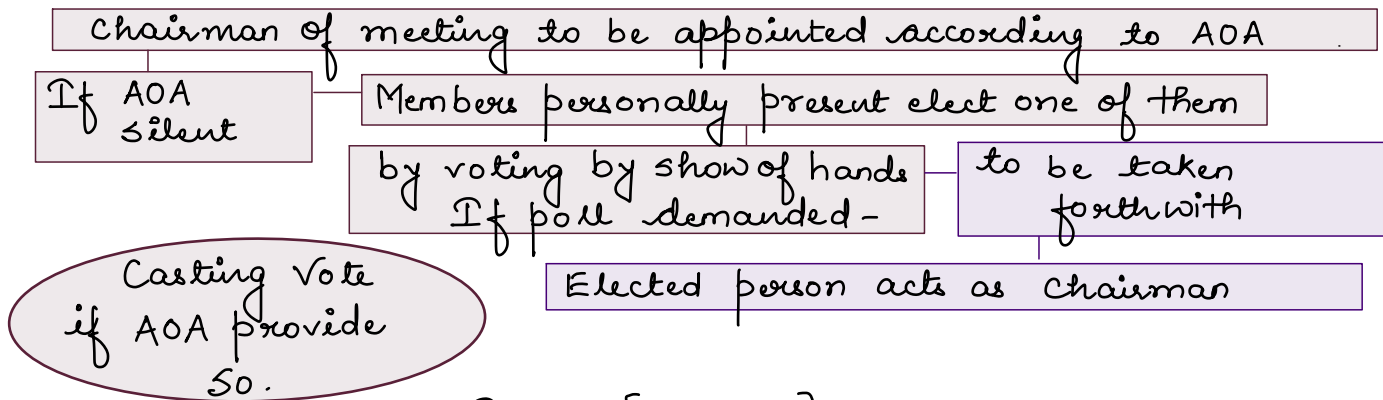 Chairman of meeting to be appointed according to AOA
If AOA
silent
Members personally present elect one of them
by voting by show of hands
If poll demanded -
to be taken
forthwith
Elected person acts as Chairman
Casting Vote
if AOA provide
so.